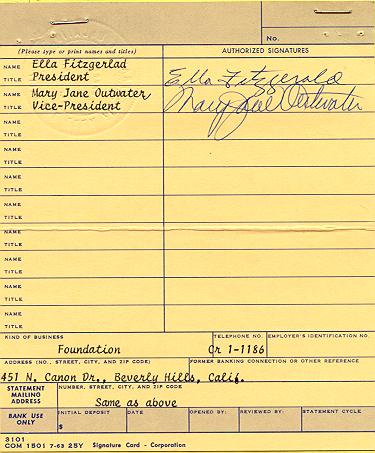 No.
(Please type or print names and titles)
AUTHORIZED SIGNATURES
NAME Ella Fitzgerlad
TITLE President
Ella Fitzgerald
NAME Mary Jane Outwater
TITLE Vice-President
Mary Jane Outwater
NAME
TITLE
NAME
TITLE
NAME
TITLE
NAME
TITLE
NAME
TITLE
NAME
TITLE
NAME
TITLE
NAME
TITLE
KIND OF BUSINESS
Foundation
TELEPHONE NO.
Cr 1-1186
EMPLOYER'S IDENTIFICATION NO.
ADDRESS (NO., STREET, CITY, AND ZIP CODE)
FORMER BANKING CONNECTION OR OTHER REFERENCE
451 N. Canon Dr., Beverly Hills, Calif.
STATEMENT MAILING ADDRESS
NUMBER, STREET, CITY, AND ZIP CODE)
Same as above
BANK USE ONLY
INITIAL DEPOSIT
$
DATE
OPENED BY:
REVIEWED BY:
STATEMENT CYCLE
3101
COM 1501 7-63 25Y Signature Card - Corporation